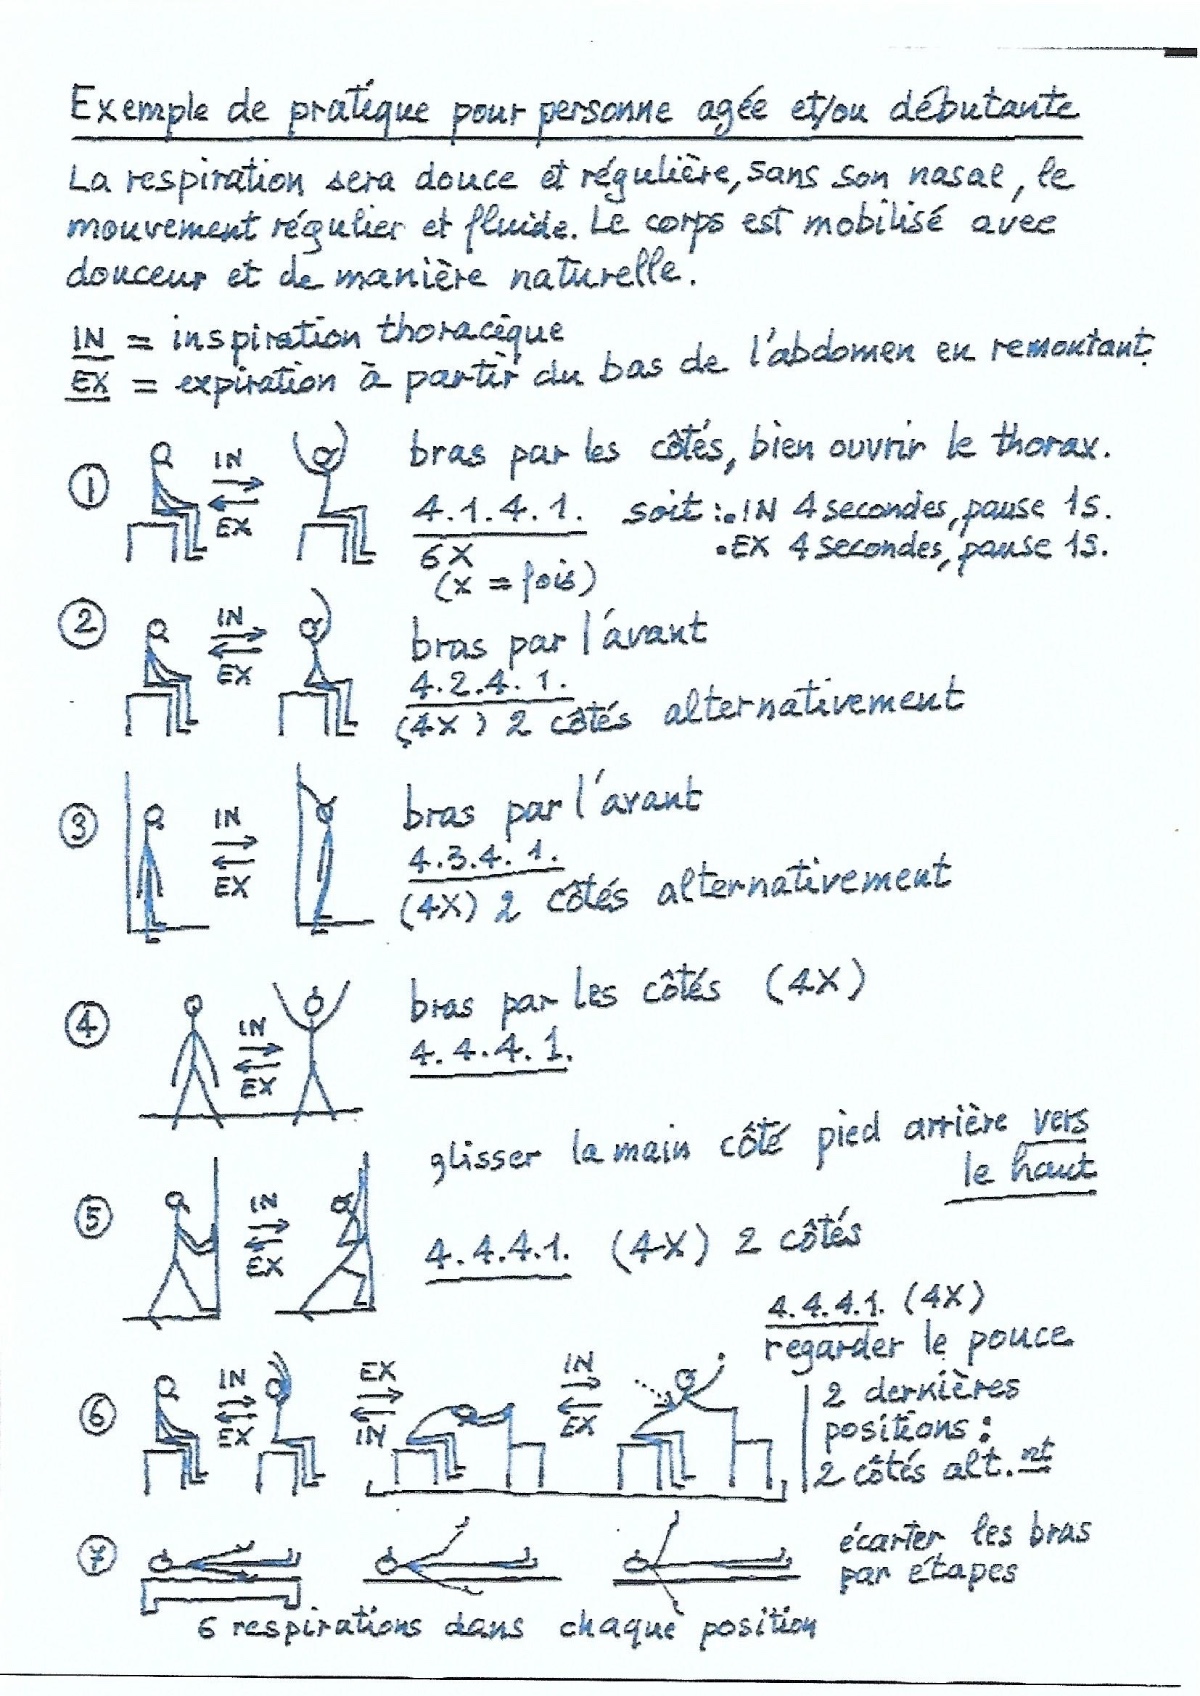 Exemple de pratique pour personne agée et/ou débutante
La respiration sera douce et régulière, sans son nasal, le
mouvement régulier et fluide. Le corps est mobilisé avec
douceur et de manière naturelle.
IN = inspiration thoracique
EX = expiration à partir du bas de l'abdomen en remontant.
1 IN EX bras par les côtés, bien ouvrir le thorax.
4.1.4.1. soit : • IN 4 secondes, pause 1s.
• EX 4 secondes, pause 1s.
6X
(x = fois)
2 IN EX bras par l'avant
4.2.4.1.
(4X) 2 côtés alternativement
3 IN EX bras par l'avant
4.3.4.1.
(4X) 2 côtés alternativement
4 IN EX bras par les côtés (4X)
4.4.4.1.
glisser la main côté pied arrière vers
le haut
5 IN EX 4.4.4.1. (4X) 2 côtés
4.4.4.1. (4X)
regarder le pouce
6 IN EX EX IN IN EX 2 dernières
positions :
2 côtés alt.nt
7 écarter les bras
par étapes
6 respirations dans chaque position